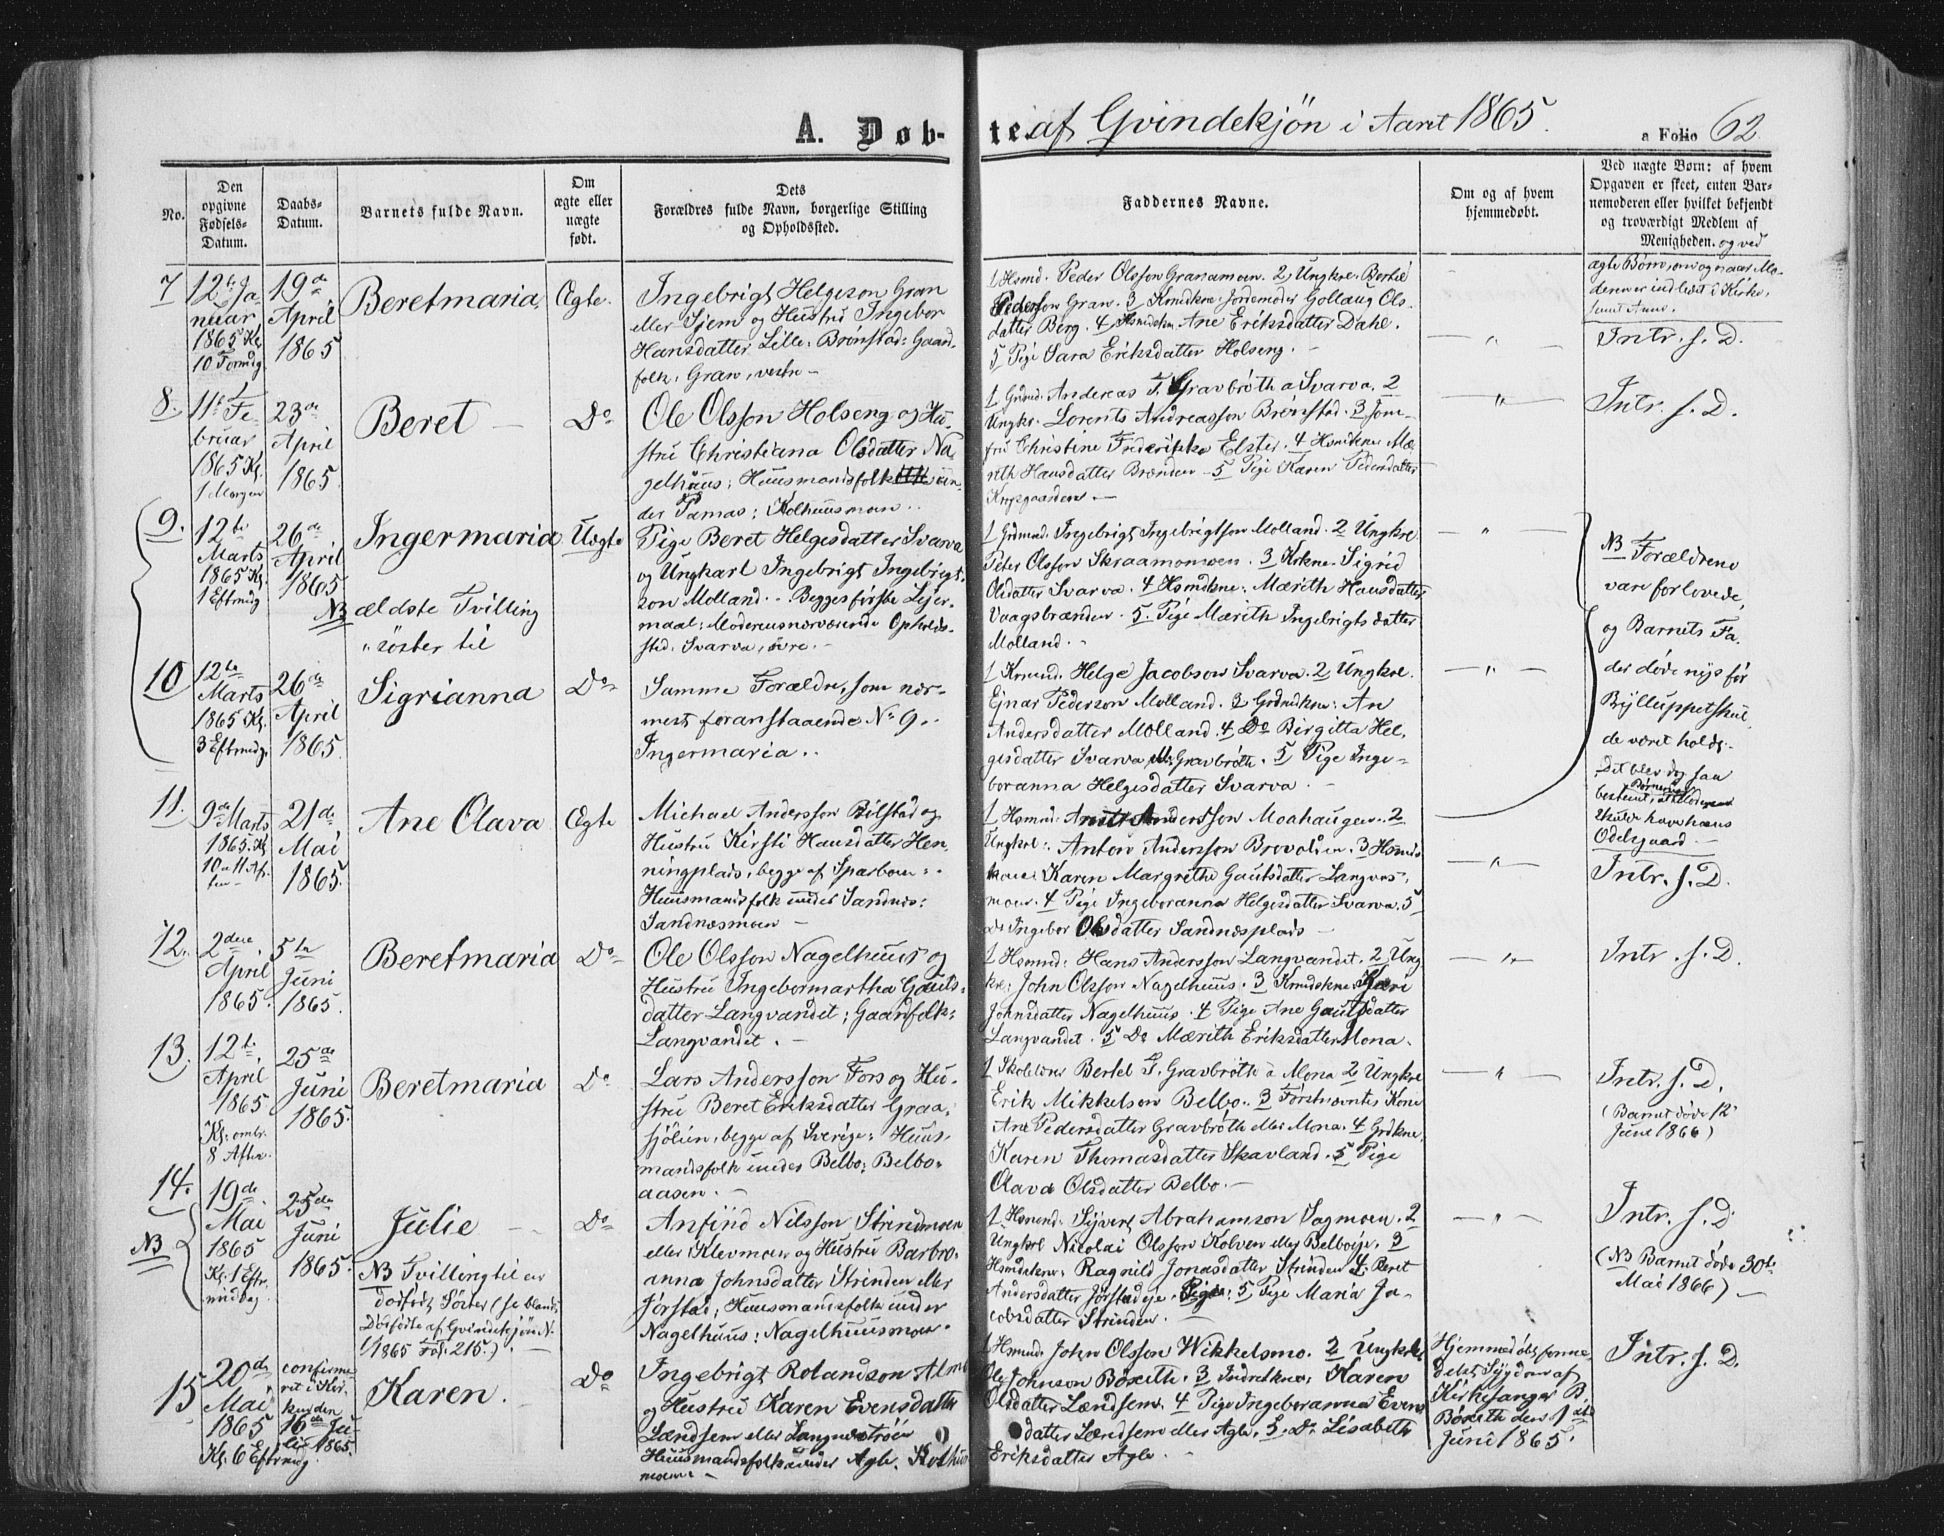 A. Døb-
te af Qvindekjön i Aaret 1865.
a Folio 62.
No.
Den opgivne Fødsels-Datum.
Daabs-Datum.
Barnets fulde Navn.
Om ægte eller uægte født.
Dets Forældres fulde Navn, borgerlige Stilling og Opholdssted.
Faddernes Navne.
Om og af hvem hjemmedøbt.
Ved uægte Børn: af hvem
Opgaven er skeet, enten Bar-
nemoderen eller hvilket bekjendt
og troværdigt Medlem af
Menigheden. og ved
ægte Børn, om og naar Mo-
deren er indledet i Kirke,
samt Anm.
7
12te Ja-
nuar
1865 Kl.
10 Formdg
19de
April
1865
Beretmaria.
Ægte.
Ingebrigt Helgeson Gran
eller Sjem og Hustru Ingebor
Hansdatter Lille-Brønstad: Gaard-
folk, Gran, vestre –
1 Hsmd. Peder Olsson Granamoen. 2, Ungkrl. Bertil
Pederson Gran. 3 Konedkne: Jordemoder Gollaug Ols-
datter Berg. 4 Hsmdskne. Ane Eriksdatter Dahl.
5 Pige Sara Eriksdatter Holseng. –
– " –
Intr. s. D.
8.
11te Fe-
bruar
1865 Kl.
1 Morgen
23de
April
1865.
Beret –
Do
Ole Olsson Holseng og Hu-
stru Christiana Olsdatter Na-
gelhuus; Huusmandsfolk un-
der Parnas: Kolhuusmoen..
1 Grdmd. Andereas T. Gravbrøth a Svarva. 2
Ungkr. Lorents Andreasson Brønstad. 3 Jom-
fru Christine Frederikke Elster. 4 Hsmdkne Mæ-
rith Hansdatter Brænden – 5 Pige Karen Pedersdatter
– " –
Intr. s. D.
9.
12te
Marts
1865 Kl.
1 Eftmdg
26de
April
1865
Ingermaria
NB ældste Tvilling
" söster til
Uægte
Pige Beret Helgesdatter Svarva
og Ungkarl Ingebrigt Ingebrigt-
son Molland.. Begges første Lejer-
maal; Moderens nærværende Opholds-
sted. Svarva, øvre. –
1 Grdmd. Ingebrigt Ingebrigtson Molland. 2 Ungkrl.
Peter Olsson Skraamomoen. 3 Krkne. Sigrid
Olsdatter Svarva. 4 Hsmdkne: Mærith Hansdatter
Vaagsbrænden. 5. Pige Mærith Ingebrigtsdatter
Molland. -
– " –
NB Forældrene
vare forlovede,
og Barnets Fa-
der døde nys før
Bryllupet skul-
de været holdt.
Det blev dog saa
bestemt, at Moderen
Børnene
skulde have hans
Odelsgaard –
10
12te
Marts
1865 Kl.
3 Eftrmdg.
26de
April
1865.
Sigrianna
Do
Samme Forældre, som nær-
mest foranstaaende No 9..
Ingermaria..
1 Krmd. Helge Jacobson Svarva. 2 Ungkrl.
Ejnar Pederson Molland. 3 Grdmdkne: Ane
Andersdatter Molland. 4 Do Birgitta Hel-
gesdatter Svarva ell: Gravbrøth. 5 Pige Inge-
boranna Helgesdatter Svarva. -
– " –
11.
9de Marts
1865. Kl.
10 a 11 Af-
ten –
21de
Mai
1865.
Ane Olava
Ægte
Michael Andersson Bilstad og
Hustru Kirsti Hansdatter Hen-
ningplads, begge af Sparboen:
Huusmandsfolk under Sandnes:
Sandnæsmoen –
1 Hsmd: Andersson Moahaugen.. 2
Ungkrl:. Anton Andersson Brovolden. 3 Hsmds-
kone: Karen Margrethe Gautsdatter Langvas-
moen. 4 Pige Ingeboranna Helgesdatter Svarva. 5
Do Ingebor Olsdatter Sandnesplads –
– " –
Intr. s. D.
12.
2den
April
1865.
5te
Juni
1865.
Beretmaria
Do
Ole Olsson Nagelhuus og
Hustru Ingebormartha Gauts-
datter Langvandet; Gaardfolk:
Langvandet. –
1 Hsmnd: Hans Andersson Langvandet. 2 Ung
krl: John Olsson Nagelhuus. 3 Krmdskne: Kari
Johnsdatter Nagelhuus. 4 Pige Ane Gautsdatter
Langvandet. 5 Do Mærith Eriksdatter Mona.
– " –
Intr. s. D.
13.
12te
April
1865
Kl: omtr.
8 Aften.
25de
Juni
1865.
Beretmaria
Do
Lars Andersson Fors og Hu-
stru Beret Eriksdatter Graa-
sjölien, begge af Sverige: Huus-
mandsfolk under Belbo: Belbo-
aasen. –
1 Skolelærer Bertel T. Gravbrøth a Mona 2 Ungkrl
Erik Mikkelson Belbo.. 3 Förstnævntes Kone
Ane Pedersdatter Gravbrøth eller Mona. 4 Grdkne.
Karen Thomasdatter Skavland. 5 Pige
Olava Olsdatter Belbo. –
– " –
Intr. s. D.
(Barnet døde 12
Juni 1866)
14.
NB
19de
Mai
1865
Kl. 1 Eftr-
middag.
25de
Juni
1865.
Julie –
NB Tvilling til en
dödfödt Söster (se blandt
Dödfödte af Qvindekjön No
1 1865 Fol. 215.)
Do
Anfind Nilsson Strindmoen
eller Klevmoen og Hustru Barbro-
anna Johnsdatter Strinden eller
Jørstad; Huusmandsfolk under
Nagelhuus: Nagelhuusmoen.
1 Hsmnd: Sivert Abrahamson Sagmoen. 2
Ungkrl Nicolai Olsson Kolven eller Belboeje. 3
Hsmdskne: Ragnild Jonasdatter Strinden 4: Beret
Andersdatter Jørstadeje. 5 Pige Maria Ja-
cobsdatter Strinden.
– " –
Intr. s. D
(NB Barnet døde 30te
Mai 1866) –
15
20de
Mai
1865
Kl. 6 Eftrmdg.
confirme-
ret i Kir-
ken den
16de Ju-
li 1865.
Karen.
Do
Ingebrigt Rolandson Alm
og Hustru Karen Evensdatter
Lændsem eller Langnestrøen
Huusmandsfolk under Agle.
1 Hsmnd. John Olsson Wikkelsmo. 2 Ungkrl.
Ole Johnson Børeth. 3 Karen
Olsdatter Lændsem. 4 Pige Ingeboranna Evens
datter Lændsem eller Agle. 5. Do Lisabeth
Eriksdatter Agle.
Hjemmedöbt forme-
delst Sygdom af
Kirkesanger B.
Børeth den 1ste
Juni 1865.
Intr. s. D.